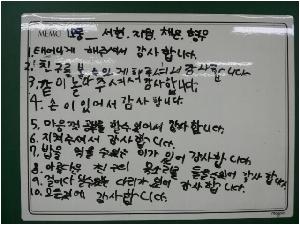 MEMO 모둠 - 서현, 지원, 채은, 형우
1. 태어나게 해주셔서 감사합니다.
2. 친구를 해주셔서 감사합니다
3. 같이 놀아 주셔서 감사합니다.
4. 손이 있어서 감사합니다.
5. 마음껏 할수 있어서 감사합니다.
6. 지켜주셔서 감사합니다.
7. 밥을 먹을 수있는 이가 있어 감사합니다.
8. 아름다운 친구의 목소리를 들을수있어 감사 합니다.
9. 걸어다닐수있는 다리가 있어 감사 합니다.
10. 모든것에 감사합니다.